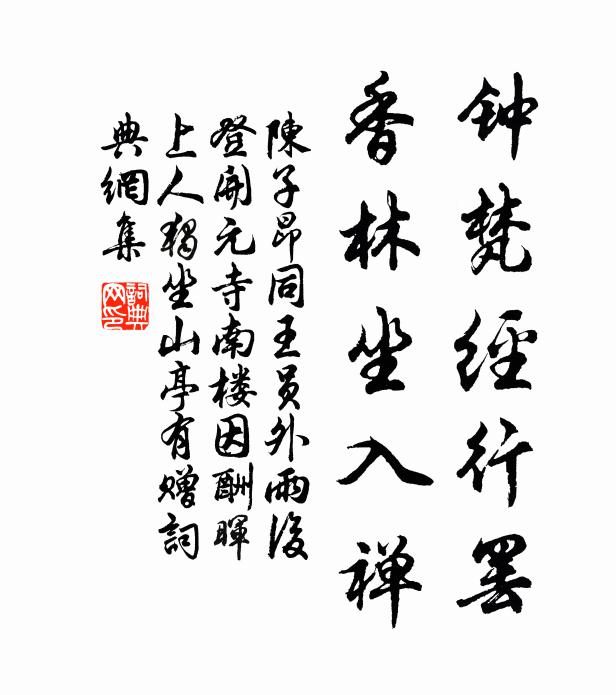 钟梵經行罢
香林坐入禅
陳子昂同王员外雨後
登開元寺南楼因酬暉
上人獨坐山亭有贈詞
典網集
詞典
网印